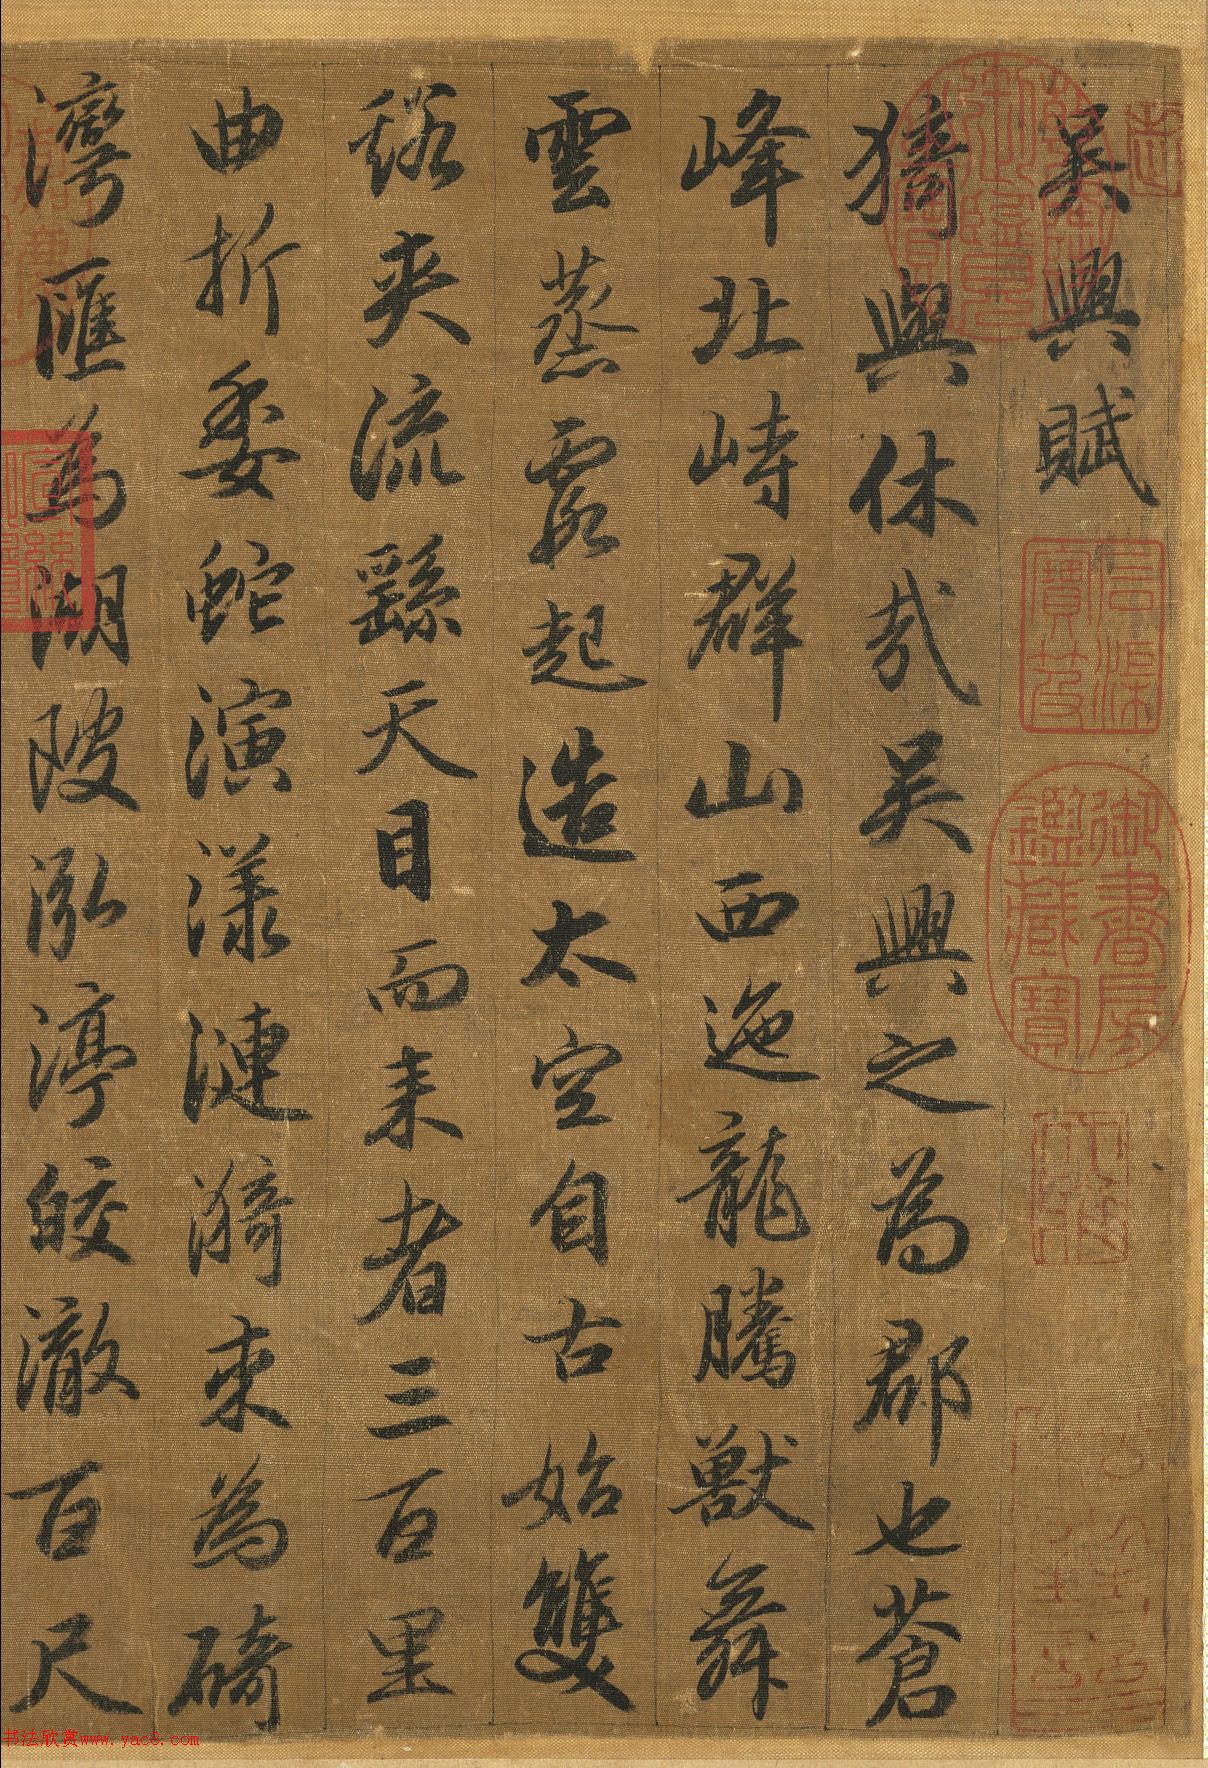 吳興賦
猗與休哉吳興之為郡也蒼
峰北峙群山西迤龍騰獸舞
雲蒸霞起造太空自古始雙
谿夾流繇天目而來者三百里
曲折委蛇演漾漣漪束為碕
灣匯為湖陂泓渟皎澈百尺
御書房鑑藏寶
书法欣赏www.yac8.com